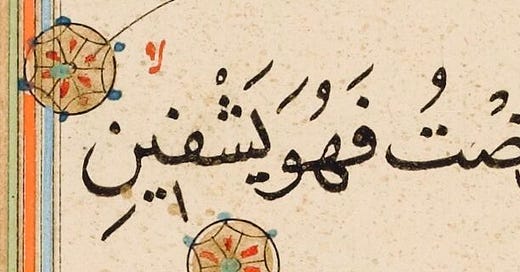 لا
ضْتُ فَهُوَ يَشْفِينِ